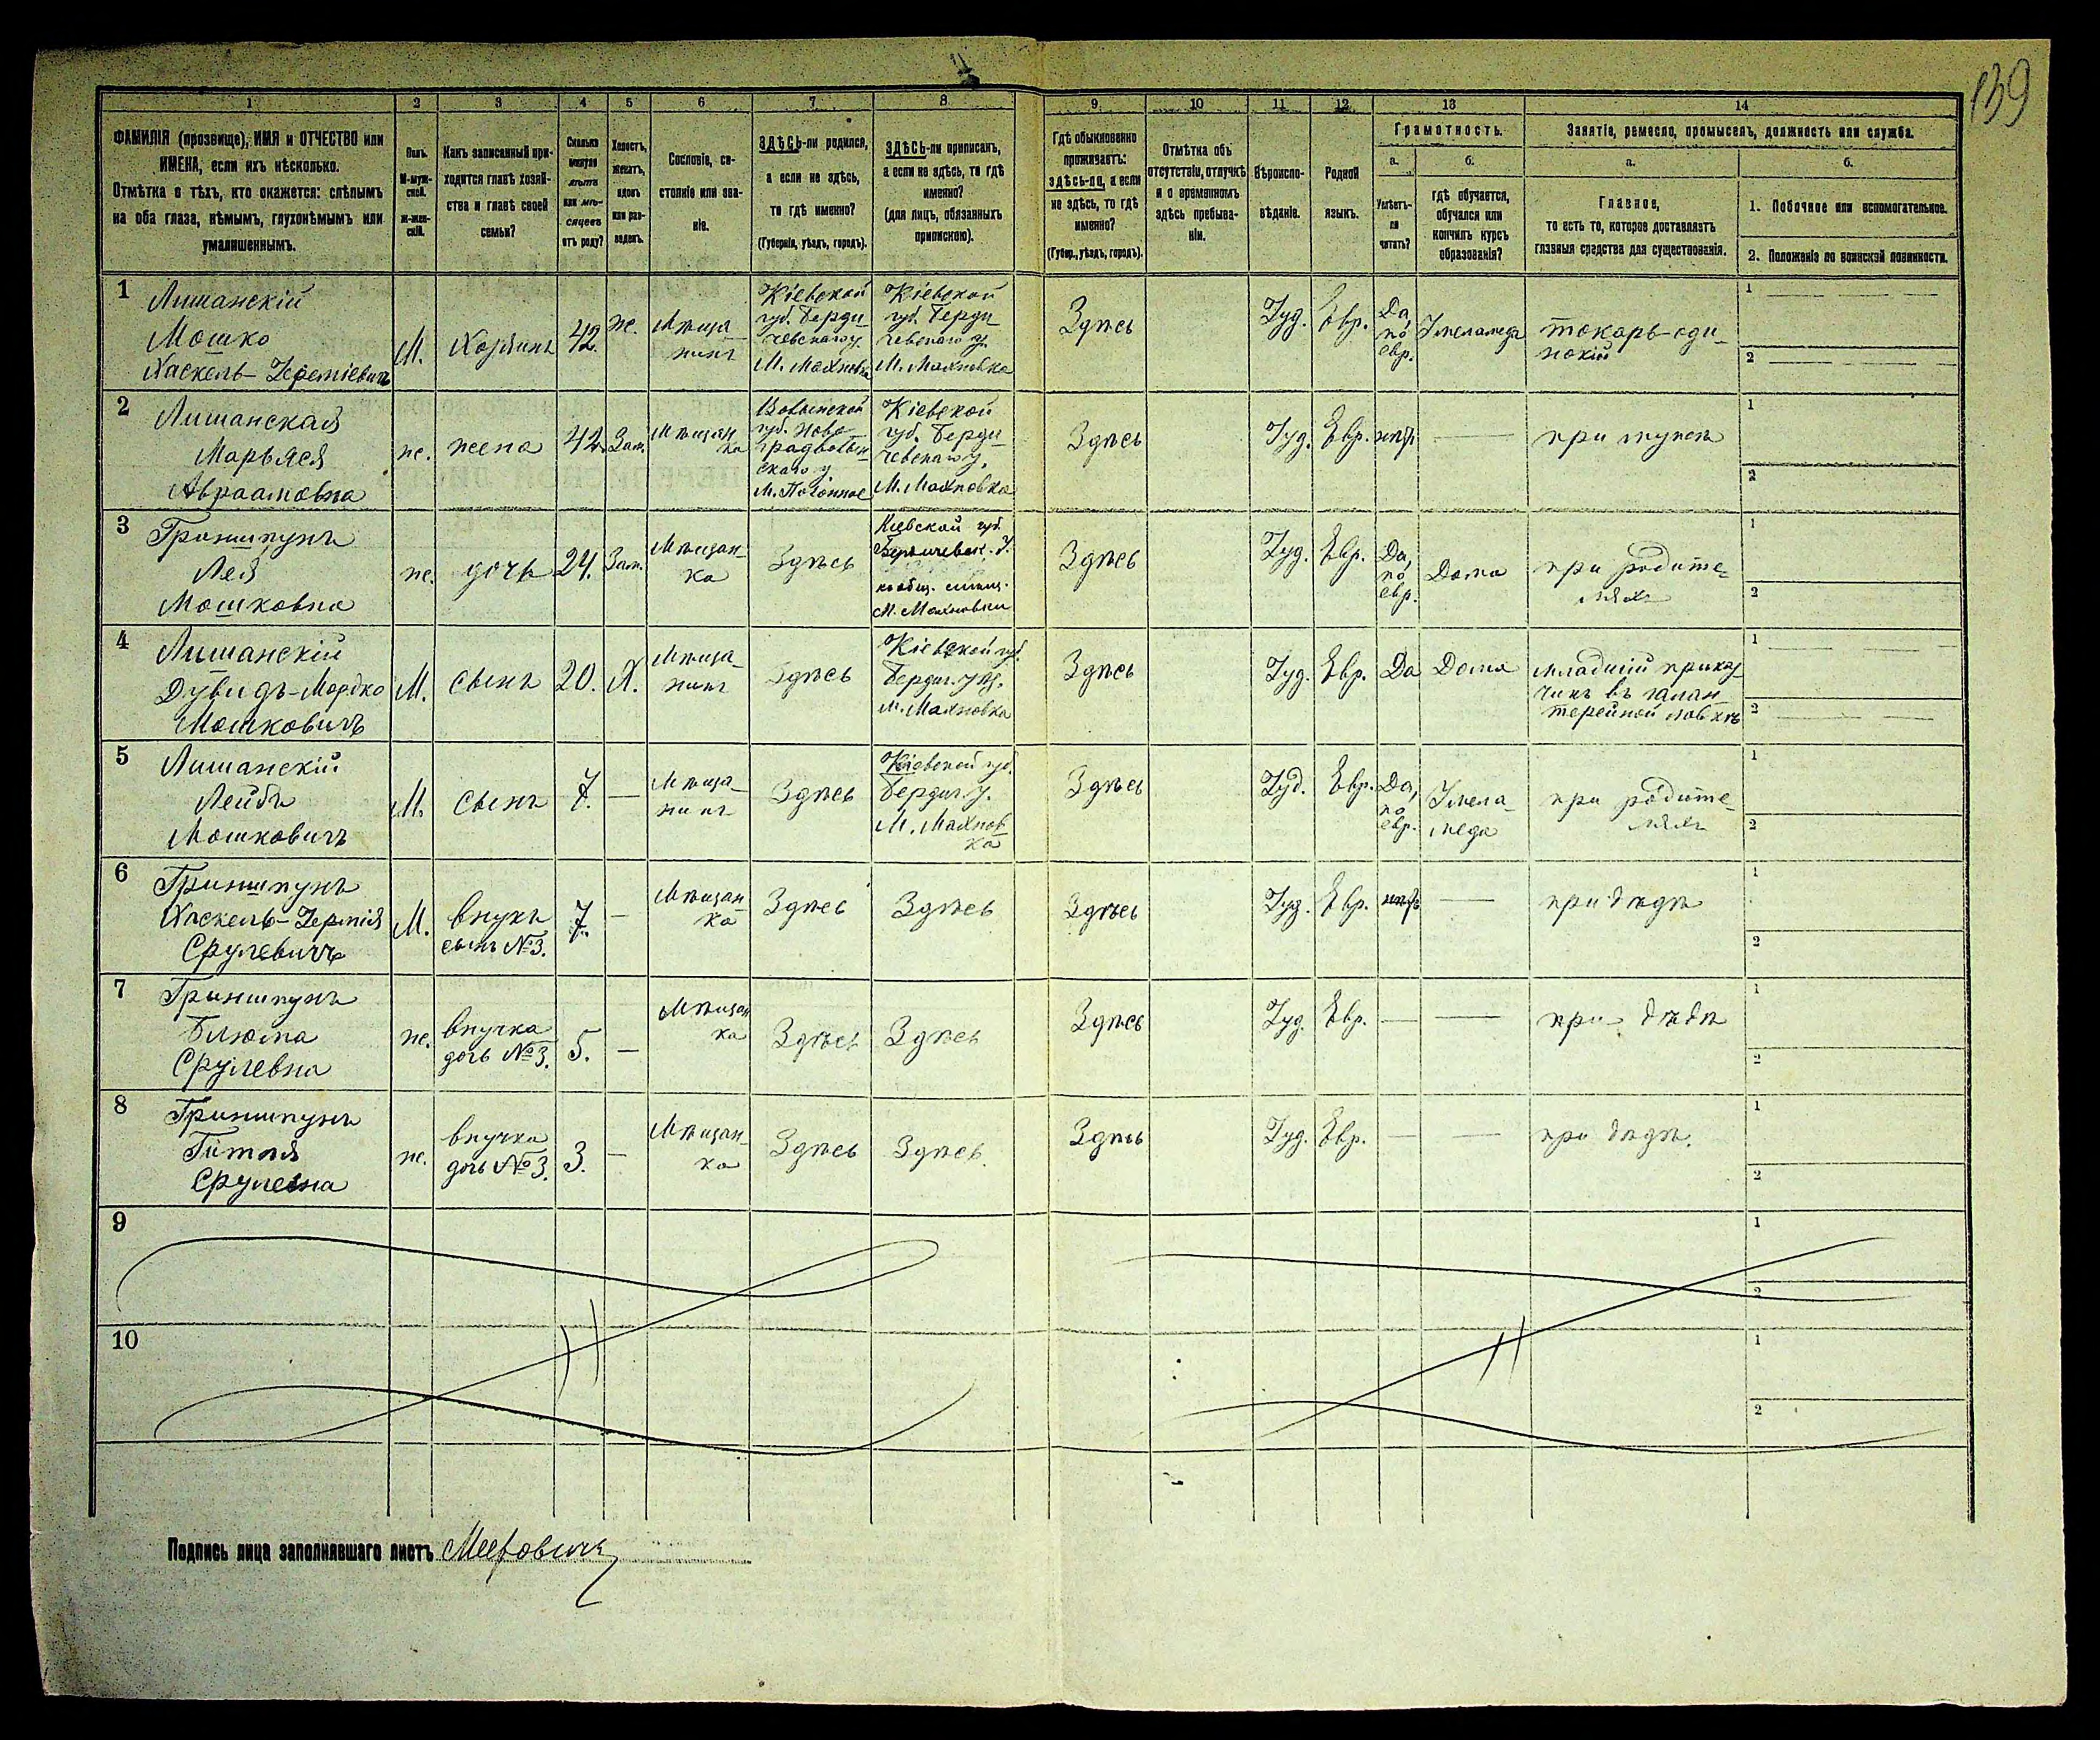 139
1 2 3 4 5 6 7 8 9 10 11 12 13 14
ФАМИЛІЯ (прозвище), ИМЯ и ОТЧЕСТВО или
ИМЕНА, если ихъ нѣсколько.
Отмѣтка о тѣхъ, кто окажется: слѣпымъ
на оба глаза, нѣмымъ, глухонѣмымъ или
умалишеннымъ.
Полъ.
М-муж-
ской.
Ж-жен-
скій.
Какъ записанный при-
ходится главѣ хозяй-
ства и главѣ своей
семьи?
Сколько
минуло
лѣтъ
или мѣ-
сяцевъ
отъ роду?
Холостъ,
женатъ,
вдовъ
или раз-
веденъ.
Сословіе, со-
стояніе или зва-
ніе.
ЗДѢСЬ-ли родился,
а если не здѣсь,
то гдѣ именно?
(Губернія, уѣздъ, городъ).
ЗДѢСЬ-ли приписанъ,
а если не здѣсь, то гдѣ
именно?
(для лицъ, обязанныхъ
припискою).
Гдѣ обыкновенно
проживаетъ:
здѣсь-ли, а если
не здѣсь, то гдѣ
именно?
(Губер., уѣздъ, городъ).
Отмѣтка объ
отсутствіи, отлучкѣ
и о временномъ
здѣсь пребыва-
ніи.
Вѣроиспо-
вѣданіе.
Родной
языкъ.
Грамотность.
а.
Умѣетъ-
ли
читать?
б.
гдѣ обучается,
обучался или
кончилъ курсъ
образованія?
Занятіе, ремесло, промыселъ, должность или служба.
а.
Главное,
то есть то, которое доставляетъ
главныя средства для существованія.
б.
1. Побочное или вспомогательное.
2. Положеніе по воинской повинности.
1
Лишанскій
Мошко
Хаскель-Іереміевичъ
М.
Хозяинъ
42.
ж.
Мѣща-
нинъ
Кіевской
губ. Берди-
чевскаго у.
М. Махновка
Кіевской
губ. Берди-
чевскаго у.
М. Махновка
Здѣсь
Іуд.
Евр.
Да,
по
евр.
У меламеда
токарь-оди-
нокій
1
2
2
Лишанская
Марьяся
Авраамовна
ж.
жена
42.
Зам.
Мѣщан-
ка
Волынской
губ. Ново-
градволын-
скаго у
Кіевской
губ. Берди-
чевскаго у.
М. Махновка
Здѣсь
Іуд.
Евр.
нѣтъ
при мужѣ
1
2
3
Гриншпунъ
Лея
Мошковна
ж.
дочь
24.
Зам.
Мѣщан-
ка
Здѣсь
Кіевской губ.
Бердичевск. у.
къ общ. мѣщ.
М. Махновки
Здѣсь
Іуд.
Евр.
Да,
по
евр.
Дома
при родите-
ляхъ
1
2
4
Лишанскій
Дувидъ-Мордко
Мошковичъ
М.
сынъ
20.
Х.
Мѣща-
нинъ
Здѣсь
Кіевской губ.
Бердич. уѣз.
М. Махновка
Здѣсь
Іуд.
Евр.
Да
Дома
младшій приказ-
чикъ въ галан-
терейной лавкѣ
1
2
5
Лишанскій
Лейбъ
Мошковичъ
М.
сынъ
7.
Мѣща-
нинъ
Здѣсь
Кіевской губ.
Бердич. у.
М. Махнов-
ка
Здѣсь
Іуд.
Евр.
Да,
по
евр.
У мела-
меда
при родите-
ляхъ
1
2
6
Гриншпунъ
Хаскель-Іермія
Срулевичъ
М.
внукъ
сынъ №3.
7.
Мѣщан-
ка
Здѣсь
Здѣсь
Здѣсь
Іуд.
Евр.
нѣтъ
при дѣдѣ
1
2
7
Гриншпунъ
Блюма
Срулевна
ж.
внучка
дочь №3.
5.
Мѣщан-
ка
Здѣсь
Здѣсь
Здѣсь
Іуд.
Евр.
при дѣдѣ
1
2
8
Гриншпунъ
Гітля
Срулевна
ж.
внучка
дочь №3.
3.
Мѣщан-
ка
Здѣсь
Здѣсь
Здѣсь
Іуд.
Евр.
при дѣдѣ.
1
2
9
1
2
10
1
2
Подпись лица заполнявшаго листъ Мееровичъ